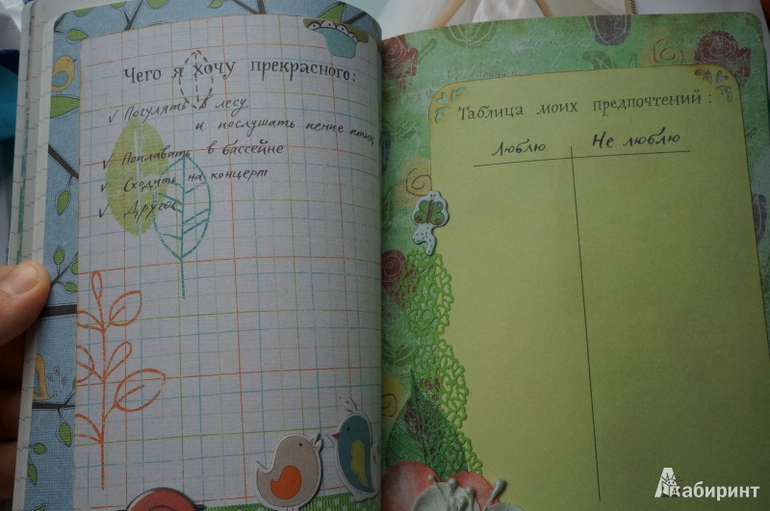 Чего я хочу прекрасного:
√ Погулять в лесу
и послушать пение птиц
√ Поплавать в бассейне
√ Сходить на концерт
√ Другое
Таблица моих предпочтений:
Люблю Не люблю
Лабиринт